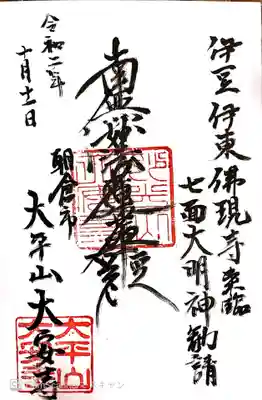 伊豆伊東佛現寺来臨
七面大明神勧請
南無妙法蓮華経
朝倉市
大平山大安寺
令和二年
十月十二日